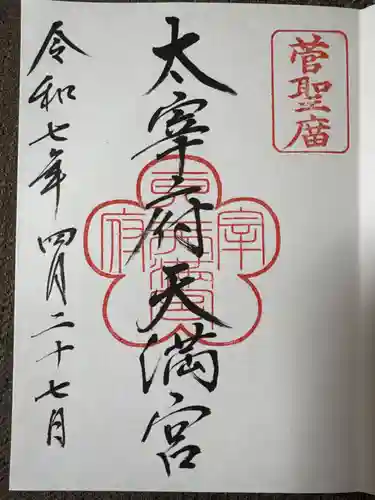 菅聖庿
太宰府天満宮
令和七年四月二十七日